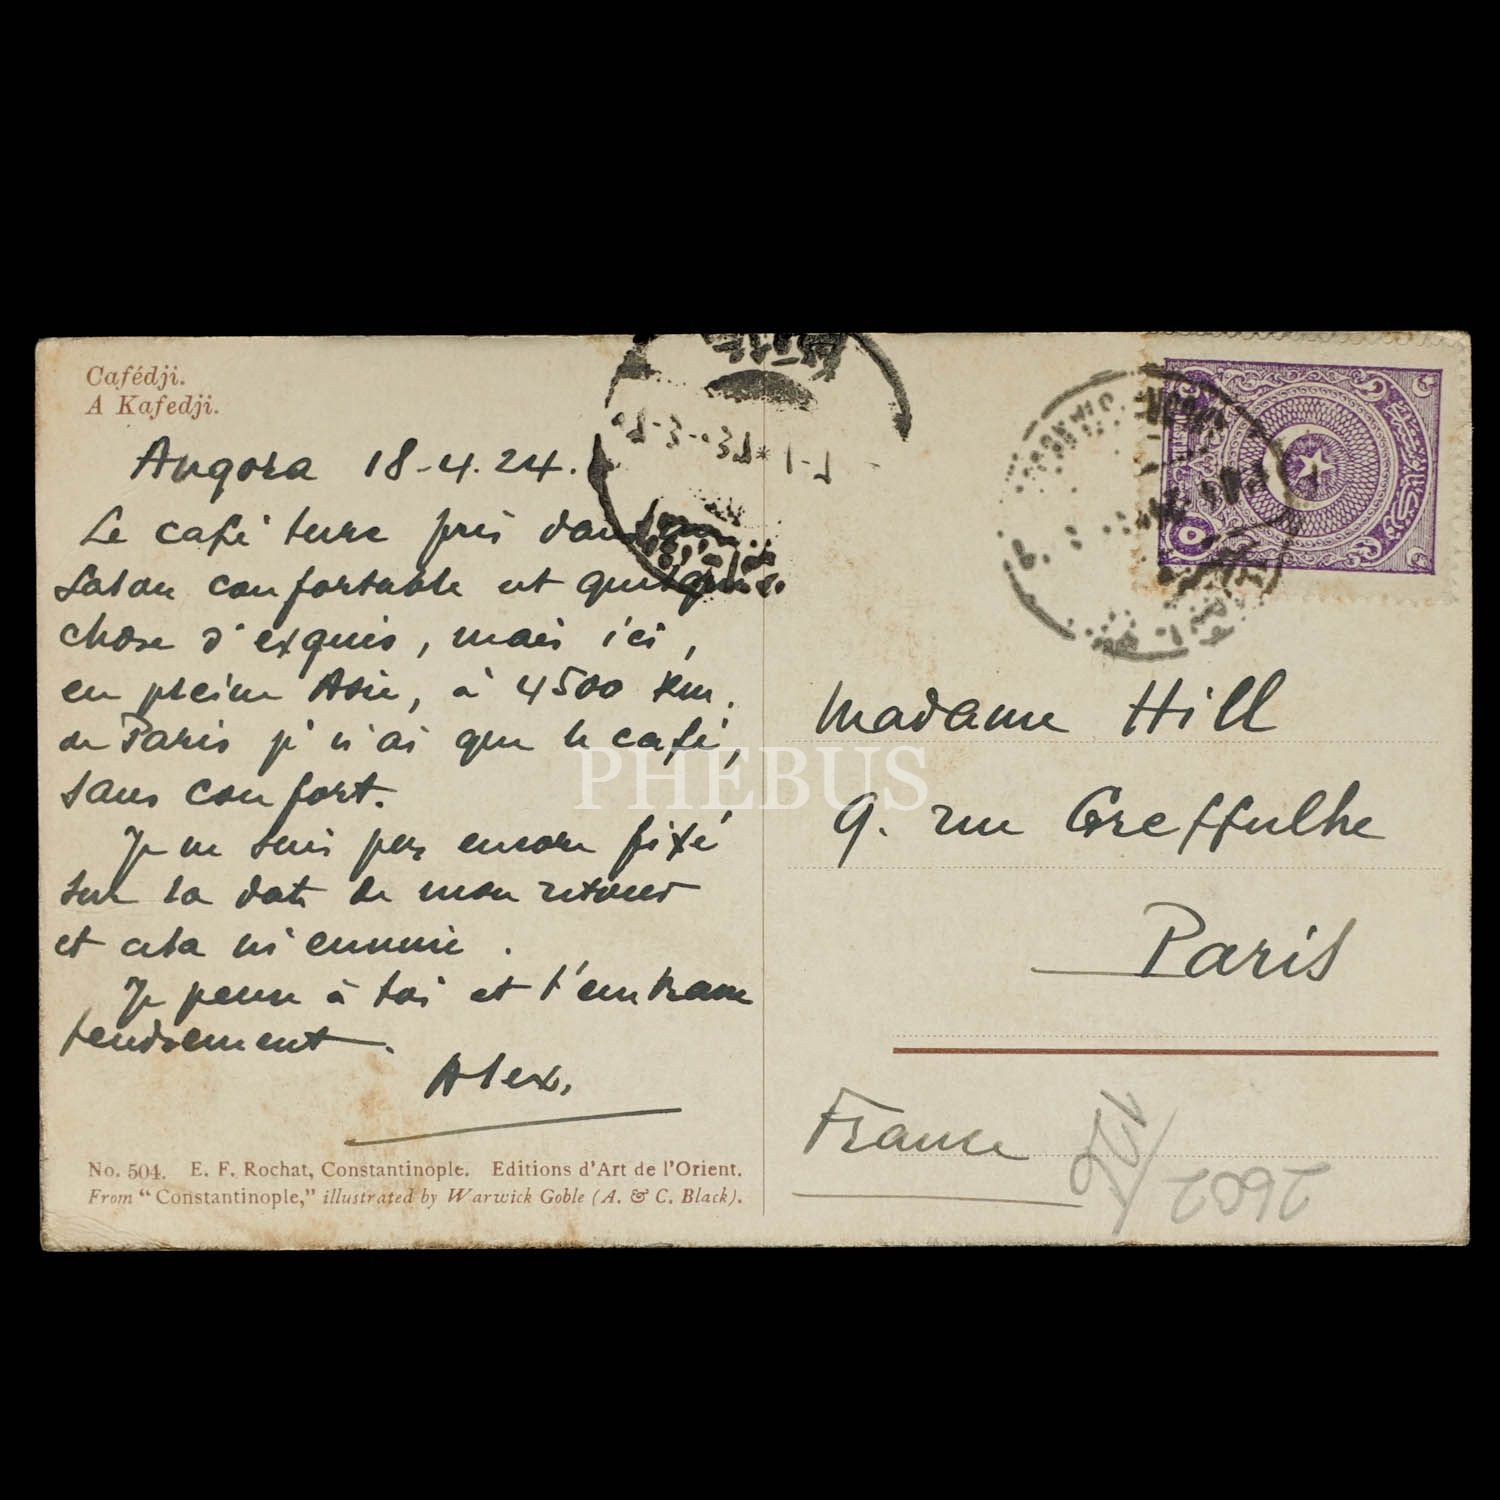 Cafédji.
A Kafedji.
Angora 18-4.24.
Le café turc pris dans un
salon confortable est quelque
chose d'exquis, mais ici,
en pleine Asie, à 4500 km.
de Paris je n'ai que le café,
sans confort.
Je ne suis pas encore fixé
sur la date de mon retour
et cela m'ennuie.
Je pense à toi et t'embrasse
tendrement.
Alex.
No. 504. E. F. Rochat, Constantinople. Editions d'Art de l'Orient.
From "Constantinople," illustrated by Warwick Goble (A. & C. Black).
Madame Hill
9. rue Greffulhe
Paris
France
2602
٥
PHEBUS